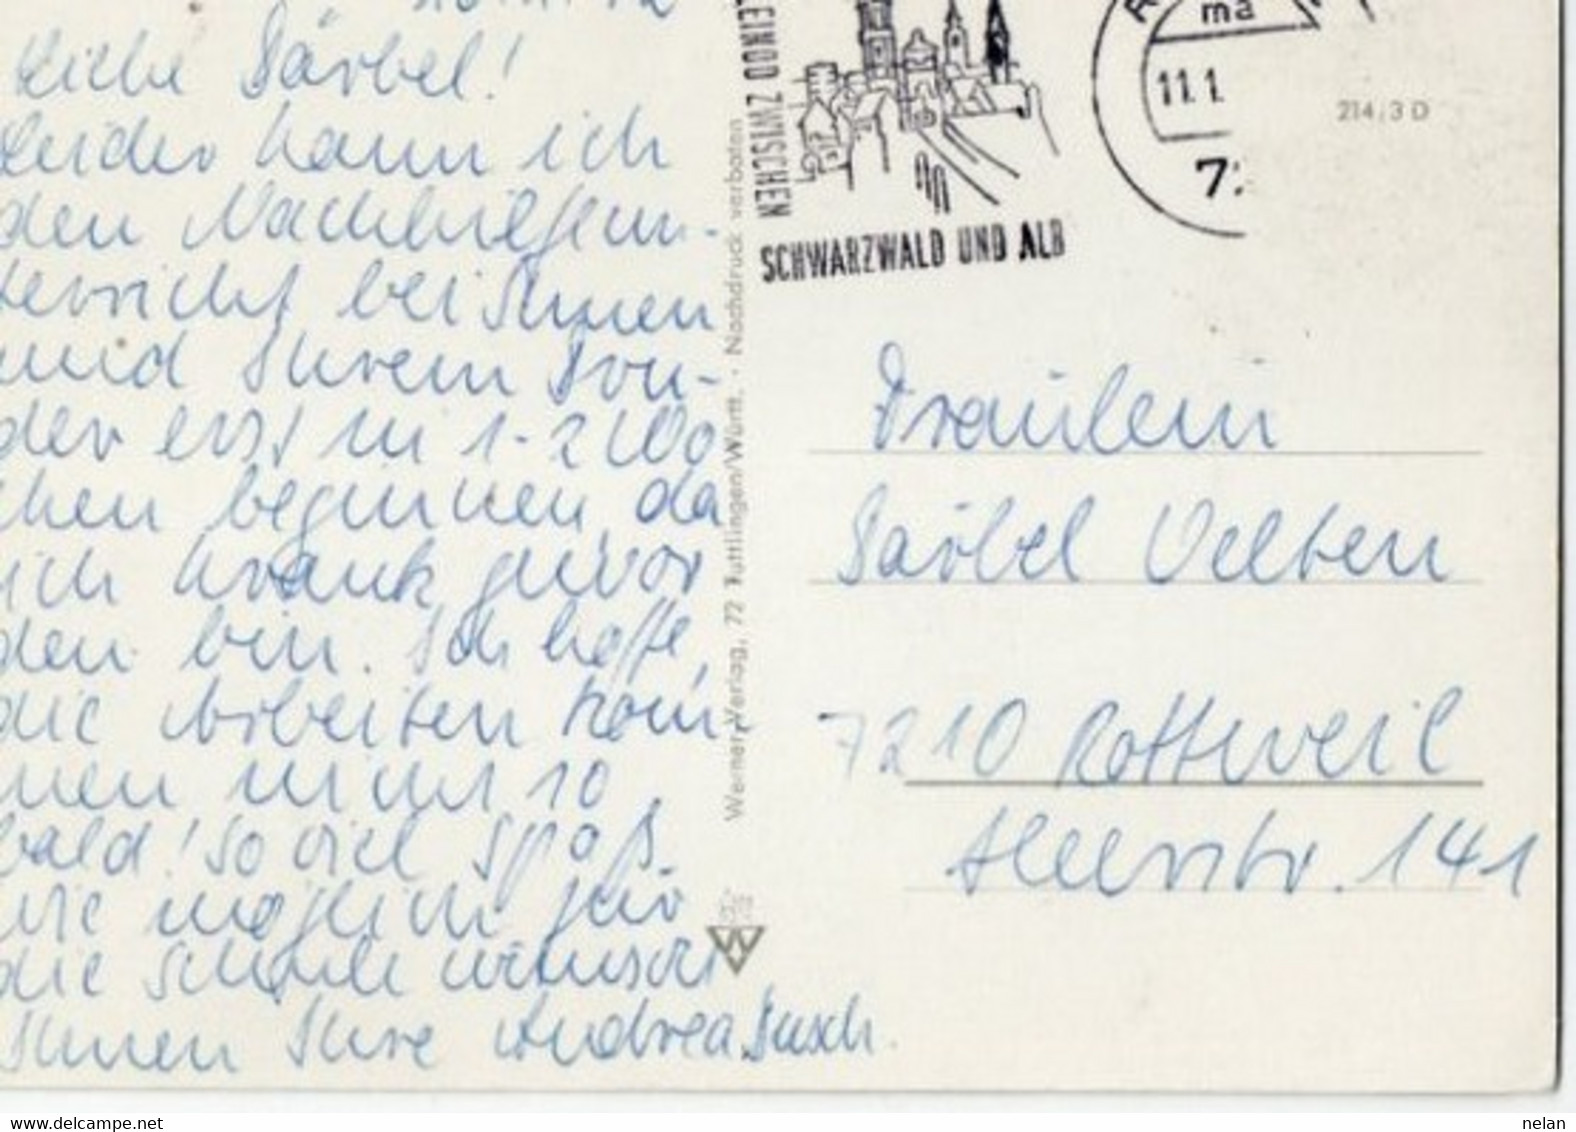 Liebe Bärbel!
Leider kann ich
den Nachhilfeun-
terricht bei Ihnen
und Ihrem Bru-
der erst in 1-2 Wo
chen beginnen, da
ich krank gewor
den bin. Ich hoffe,
die Arbeiten kom,
men nicht so
bald! So viel Spaß
wie möglich für
die Schule wünscht
Ihnen Ihre Andrea Busch.
Werner Verlag, 72 Tuttlingen/Württ. · Nachdruck verboten
LEINOD ZWISCHEN
SCHWARZWALD UND ALB
ma
11.1.
72
214/3 D
Fräulein
Bärbel Velten
7210 Rottweil
Heerstr. 141
https://www.delcampe.net
nelan